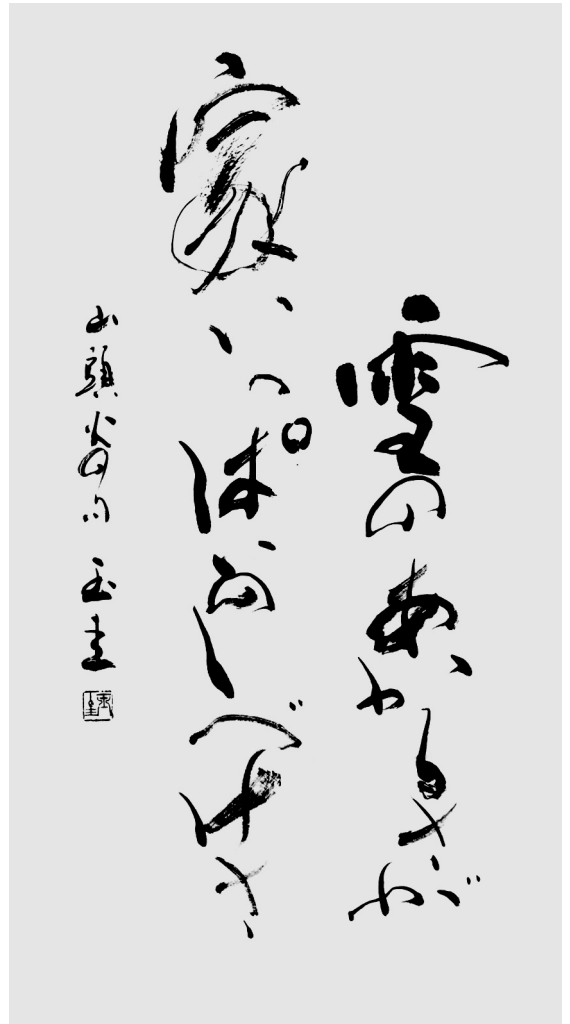 雪のあかるさが
家いっぱいのしづけさ
山頭火の句 玉圭